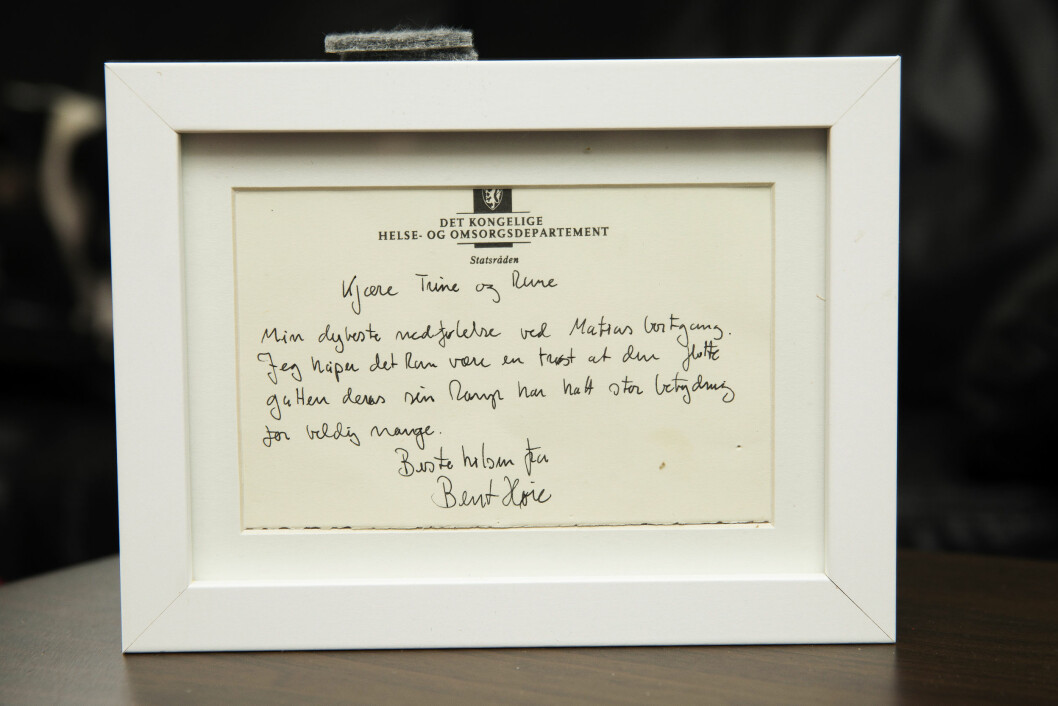 DET KONGELIGE
HELSE- OG OMSORGSDEPARTEMENT
Statsråden
Kjære Trine og Rune
Min dypeste medfølelse ved Matias bortgang.
Jeg håper det kan være en trøst at den flotte
gutten deres sin kamp har hatt stor betydning
for veldig mange.
Beste hilsen fra
Bent Høie